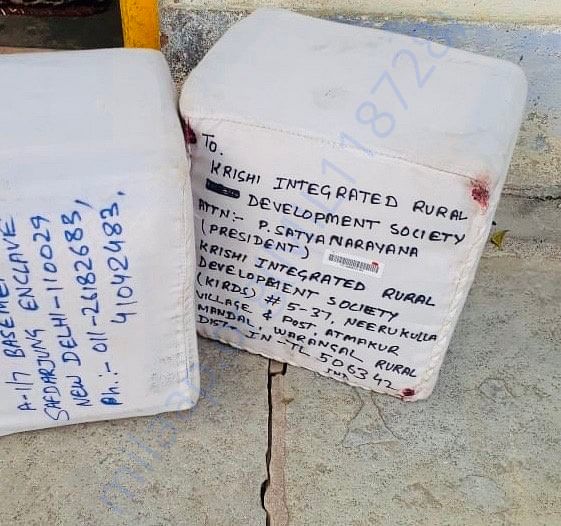 A-1/7 BASEMENT
SAFDARJUNG ENCLAVE
NEW DELHI-110029
Ph:- 011-26182683,
41042483,
To.
KRISHI INTEGRATED RURAL
DEVELOPMENT SOCIETY
ATTN:- P. SATYANARAYANA
(PRESIDENT)
KRISHI INTEGRATED RURAL
DEVELOPMENT SOCIETY
(KIRDS) # 5-37, NEERUKULLA
VILLAGE & POST, ATMAKUR
MANDAL, WARANGAL RURAL
DIST. IN-TL 506342